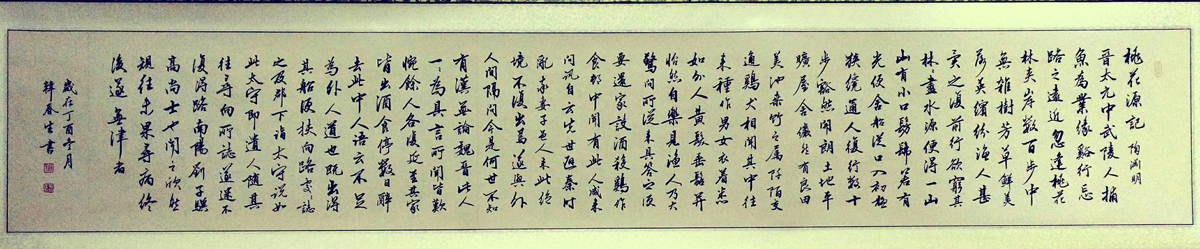 桃花源記 陶淵明
晉太元中武陵人捕
魚為業緣谿行忘
路之遠近忽逢桃花
林夾岸數百步中
無雜樹芳草鮮美
落英繽紛漁人甚
異之復前行欲窮其
林盡水源便得一山
山有小口髣髴若有
光便舍船從口入初極
狹纔通人復行數十
步豁然開朗土地平
曠屋舍儼然有良田
美池桑竹之屬阡陌交
通雞犬相聞其中往
來種作男女衣着悉
如外人黃髮垂髫并
怡然自樂見漁人乃大
驚問所從來具答之便
要還家設酒殺雞作
食村中聞有此人咸來
問訊自云先世避秦時
亂率妻子邑人來此絕
境不復出焉遂與外
人間隔問今是何世不知
有漢無論魏晉此人
一一為具言所聞皆歎
惋餘人各復延至其家
皆出酒食停數日辭
去此中人語云不足
為外人道也既出得
其船便扶向路處處誌
之及郡下詣太守說如
此太守即遣人隨其
往尋向所誌遂迷不
復得路南陽劉子驥
高尚士也聞之欣然
規往未果尋病終
後遂無津者
歲在丁酉年月
韓春生書